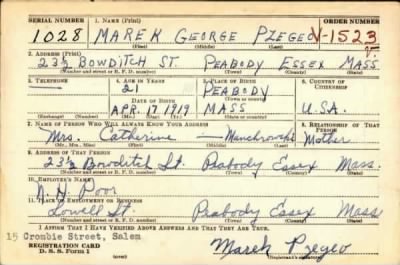 SERIAL NUMBER 1. NAME (Print) ORDER NUMBER
1028 MAREK GEORGE PZEGEO V-1523
(First) (Middle) (Last)
2. ADDRESS (Print)
23½ BOWDITCH ST. PEABODY ESSEX MASS.
(Number and street or R. F. D. number) (Town) (County) (State)
3. TELEPHONE 4. AGE IN YEARS 5. PLACE OF BIRTH 6. COUNTRY OF CITIZENSHIP
— 21 PEABODY
DATE OF BIRTH (Town or county)
APR. 17 1919 MASS U.S.A.
(Exchange) (Number) (Mo.) (Day) (Yr.) (State or country)
7. NAME OF PERSON WHO WILL ALWAYS KNOW YOUR ADDRESS 8. RELATIONSHIP OF THAT PERSON
Mrs. Catherine — Mother
(Mr., Mrs., Miss) (First) (Middle) (Last)
9. ADDRESS OF THAT PERSON
23½ Bowditch St. Peabody Essex Mass.
(Number and street or R. F. D. number) (Town) (County) (State)
10. EMPLOYER'S NAME
N. H. Poor
11. PLACE OF EMPLOYMENT OR BUSINESS
Lowell St. Peabody Essex Mass
(Number and street or R. F. D. number) (Town) (County) (State)
I AFFIRM THAT I HAVE VERIFIED ABOVE ANSWERS AND THAT THEY ARE TRUE.
15 Crombie Street, Salem
REGISTRATION CARD
D. S. S. Form 1 Marek Pzegeo